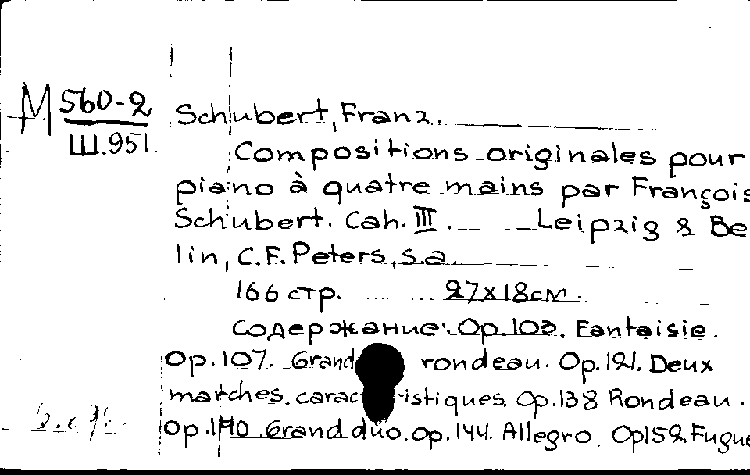 M 560-2
Ш.951
Schubert, Franz.
Compositions originales pour
piano à quatre mains par François
Schubert. Cah. III. Leipzig & Be
lin, C.F. Peters, s.a.
166 стр. 27x18см.
содержание: Op.103. Fantaisie.
Op.107. Grand rondeau. Op.121. Deux
marches caractéristiques Op.138 Rondeau.
Op.140. Grand duo. Op.144. Allegro. Op152. Fugue